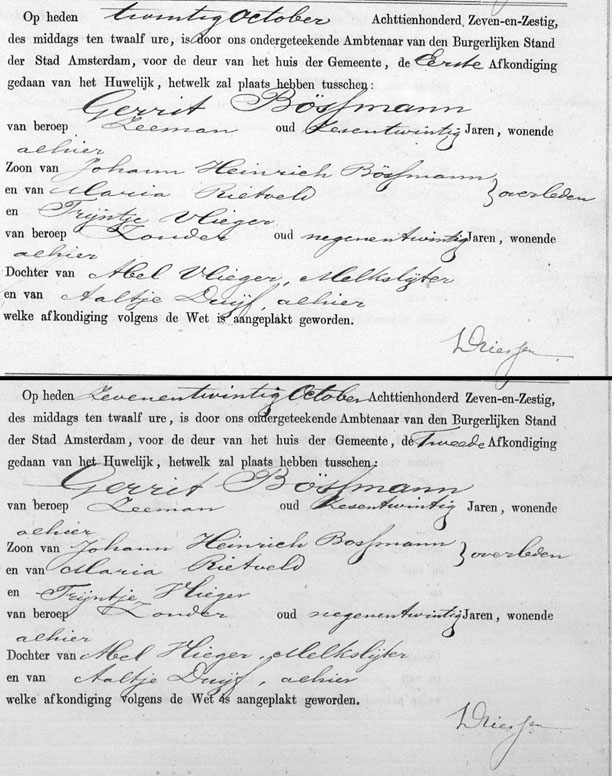 Op heden twintig October Achttienhonderd, Zeven-en-Zestig,
des middags ten twaalf ure, is door ons ondergeteekende Ambtenaar van den Burgerlijken Stand
der Stad Amsterdam, voor de deur van het huis der Gemeente, de Eerste Afkondiging
gedaan van het Huwelijk, hetwelk zal plaats hebben tusschen:
Gerrit Bössmann
van beroep Zeeman oud Zesentwintig Jaren, wonende
alhier
Zoon van Johann Heinrich Bössmann
en van Maria Rietveld } overleden
en Trijntje Vlieger
van beroep Zonder oud negenentwintig Jaren, wonende
alhier
Dochter van Abel Vlieger, Melkslijter
en van Aaltje Duijf, alhier
welke afkondiging volgens de Wet is aangeplakt geworden.
Driessen
Op heden Zevenentwintig October Achttienhonderd Zeven-en-Zestig,
des middags ten twaalf ure, is door ons ondergeteekende Ambtenaar van den Burgerlijken Stand
der Stad Amsterdam, voor de deur van het huis der Gemeente, de Tweede Afkondiging
gedaan van het Huwelijk, hetwelk zal plaats hebben tusschen:
Gerrit Bössmann
van beroep Zeeman oud Zesentwintig Jaren, wonende
alhier
Zoon van Johann Heinrich Bossmann
en van Maria Rietveld } overleden
en Trijntje Vlieger
van beroep Zonder oud negenentwintig Jaren, wonende
alhier
Dochter van Abel Vlieger, Melkslijter
en van Aaltje Duijf, alhier
welke afkondiging volgens de Wet is aangeplakt geworden.
Driessen